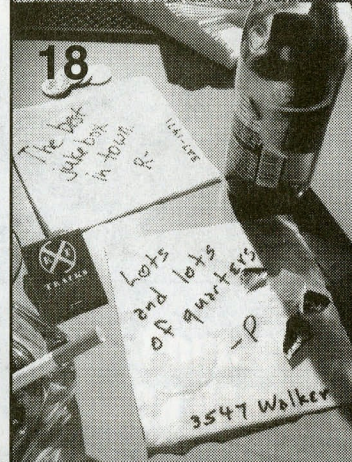 18
The best
juke box
in town.
R-
TRACKS
Lots
and lots
of quarters
-P
3547 Walker